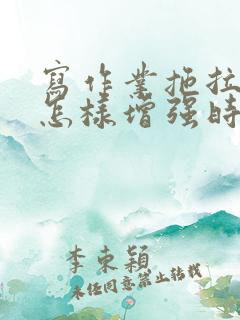 寫作業拖拉
怎樣增强時
李東穎
未经同意禁止转载